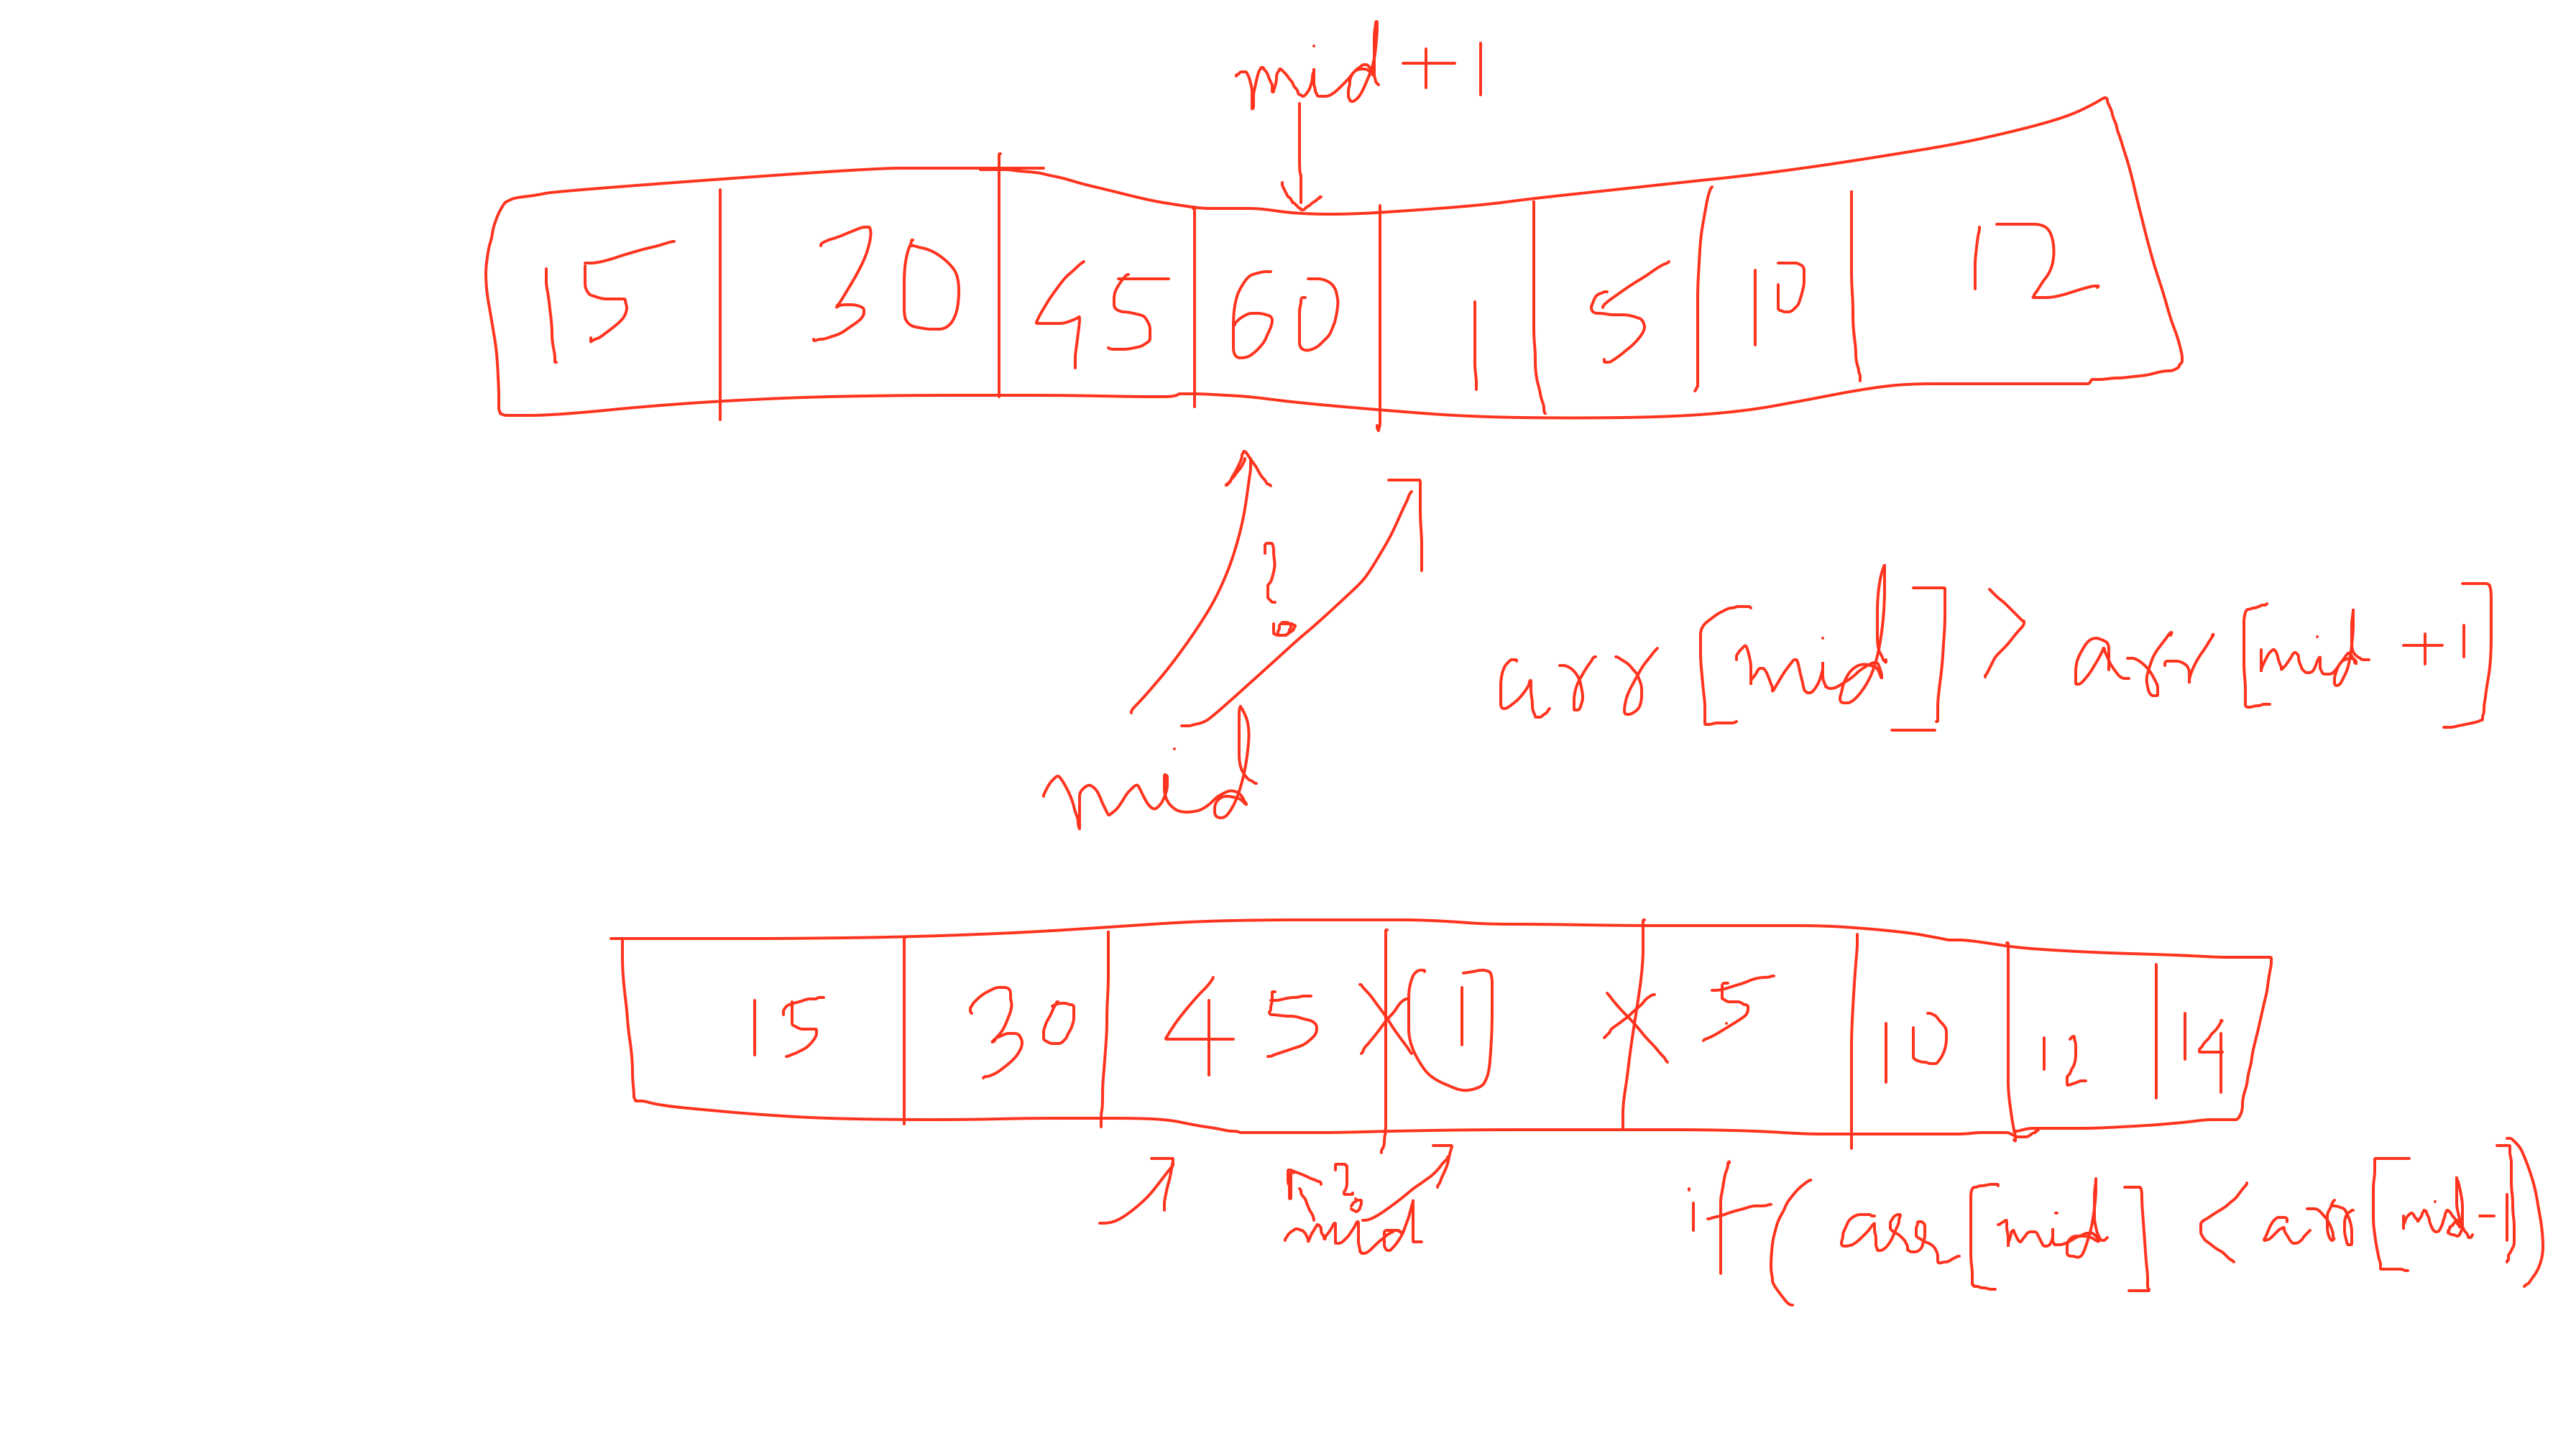 mid+1
15 30 45 60 1 5 10 12
?
arr[mid] > arr[mid +1]
mid
15 30 45 1 5 10 12 14
?
mid
if(arr[mid] < arr[mid-1])